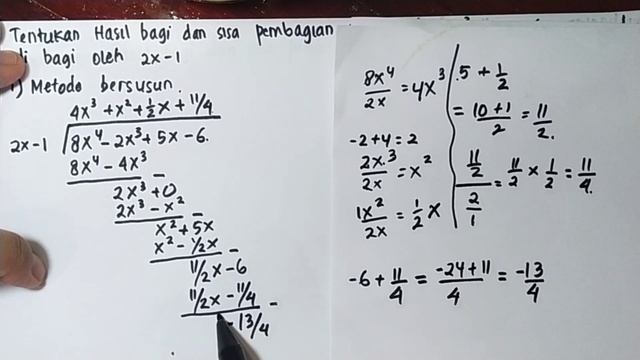 Tentukan Hasil bagi dan sisa pembagian
di bagi oleh 2x-1
1) Metode bersusun.
4x³ + x² + ½x + 11/4
2x-1 √8x⁴ - 2x³ + 5x - 6.
8x⁴ - 4x³ -
2x³ + 0
2x³ - x² -
x² + 5x
x² - ½x -
11/2x - 6
11/2x - 11/4 -
- 13/4
8x⁴/2x = 4x³
-2+4 = 2
2x³/2x = x²
1x²/2x = ½x
5 + ½
= (10+1)/2 = 11/2.
(11/2)/(2/1) = 11/2 × 1/2 = 11/4.
-6 + 11/4 = (-24+11)/4 = -13/4